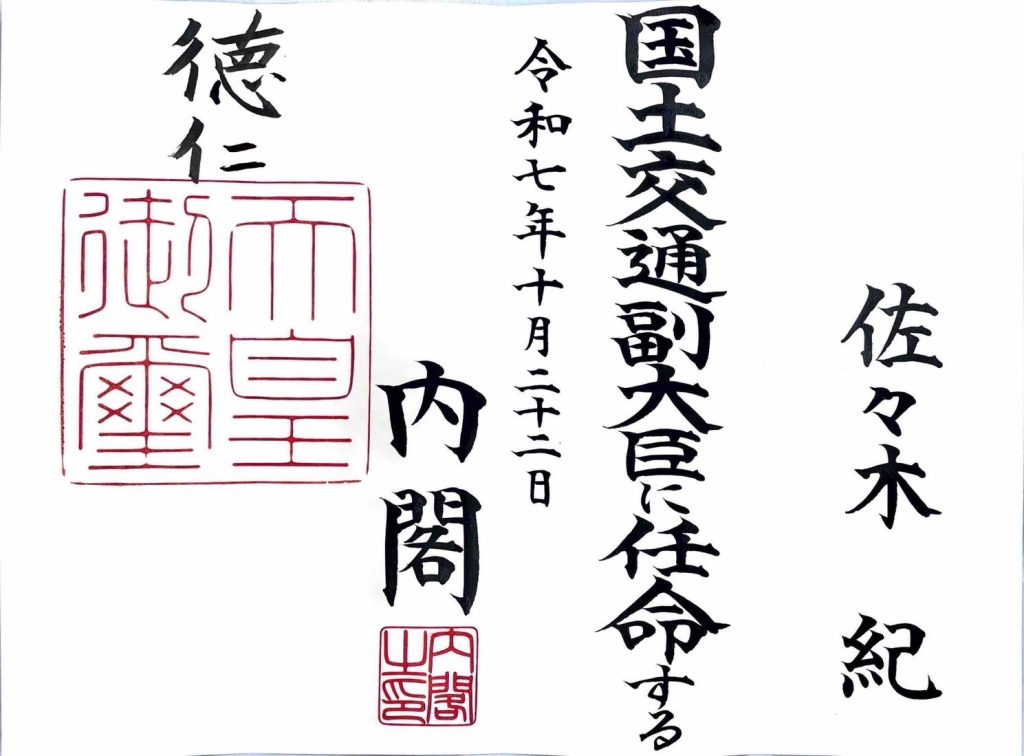 佐々木 紀
国土交通副大臣に任命する
令和七年十月二十二日
内閣
内閣之印
徳仁
天皇御璽